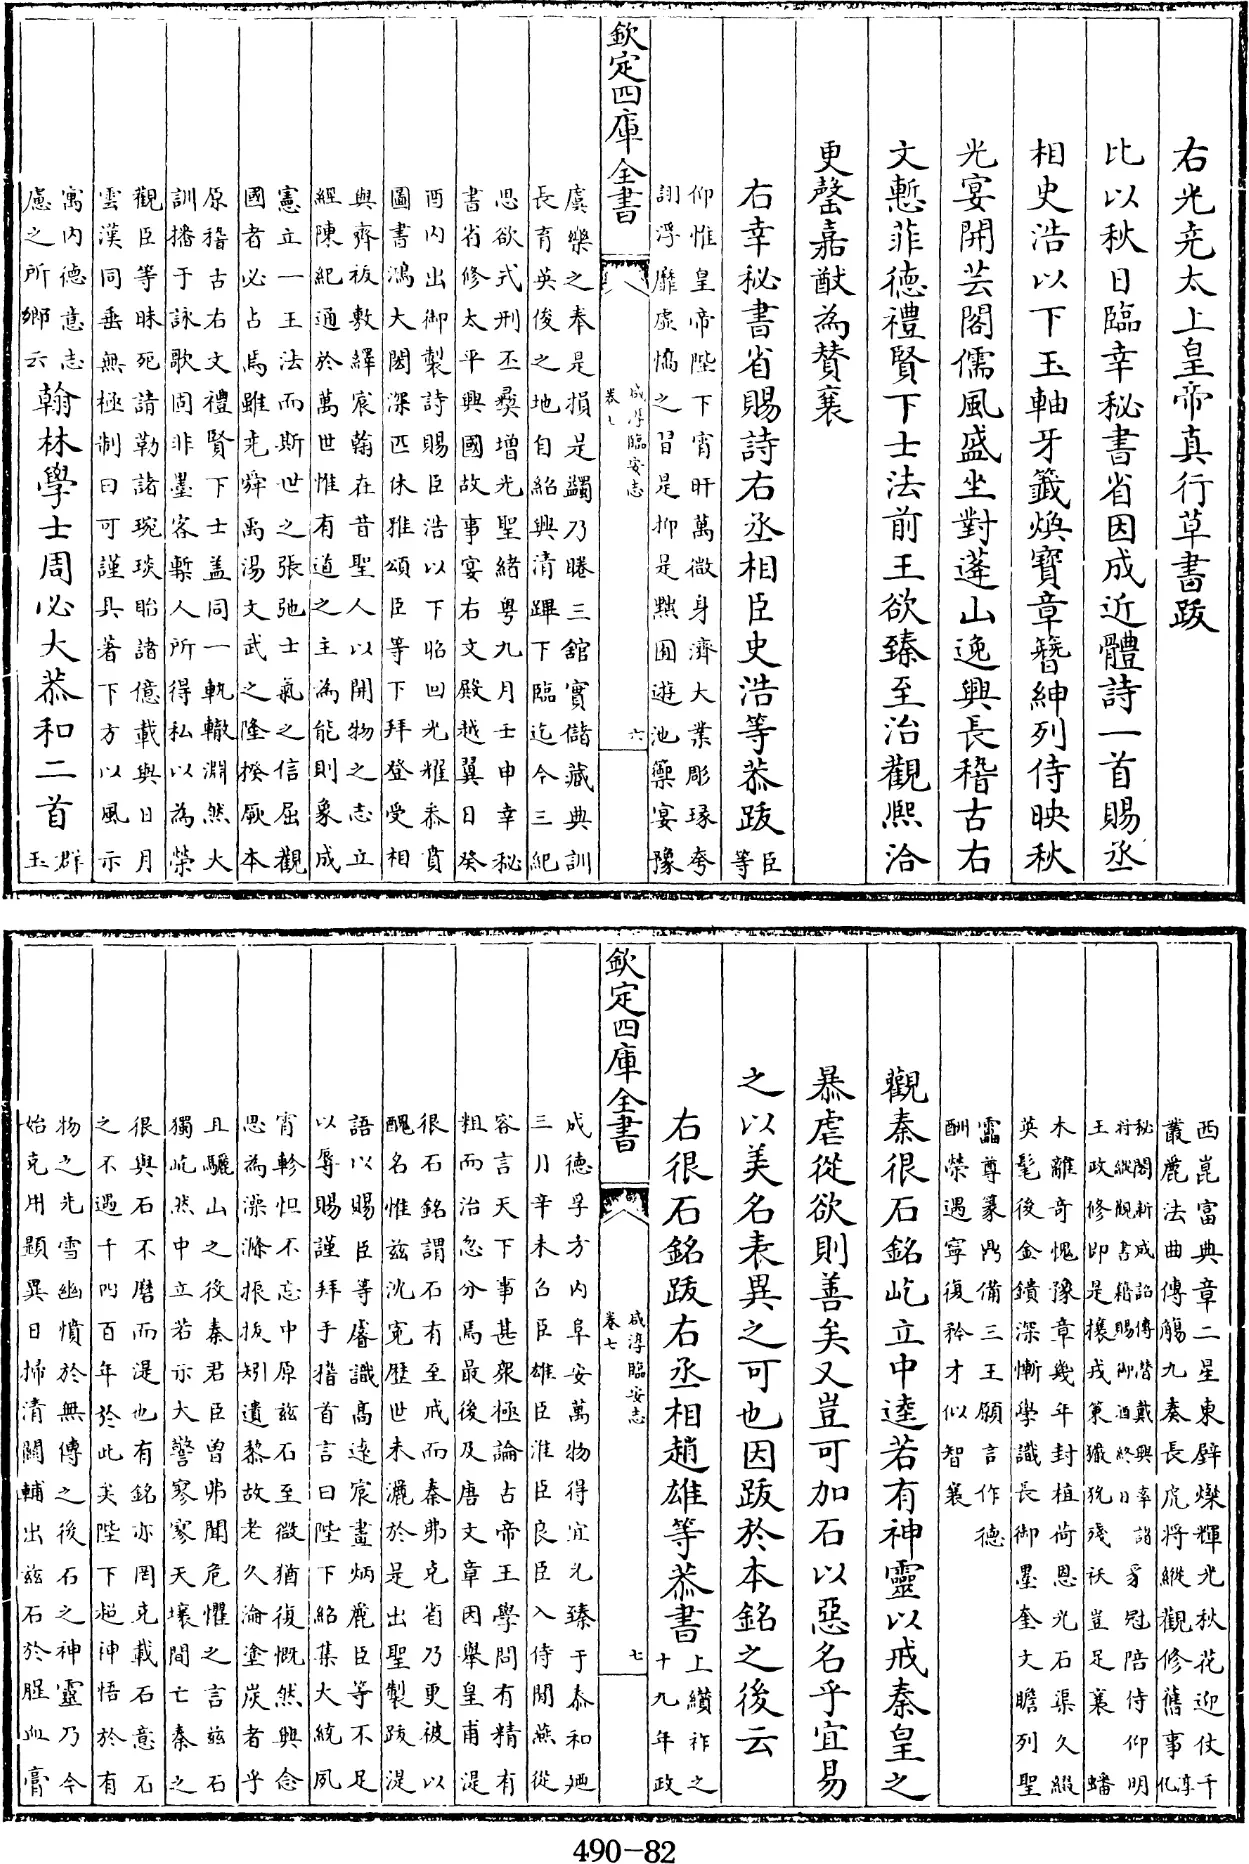 右光堯太上皇帝真行草書跋
比以秋日臨幸秘書省因成近體詩一首賜丞
相史浩以下玉軸牙籤煥寶章簪紳列侍映秋
光宴開芸閣儒風盛坐對蓬山逸興長稽古右
文慙菲德禮賢下士法前王欲臻至治觀熙洽
更罄嘉猷為贊襄
右幸秘書省賜詩右丞相臣史浩等恭跋臣等
仰惟皇帝陛下宵旰萬微身濟大業彫琢夸
詡浮靡虛憍之習是抑是黜囿遊池籞宴豫
欽定四庫全書 咸淳臨安志 卷七 六
虞樂之奉是損是蠲乃睠三館實儲藏典訓
長育英俊之地自紹興清蹕下臨迄今三紀
思欲式刑丕彝增光聖緒粤九月壬申幸秘
書省修太平興國故事宴右文殿越翼日癸
酉内出御製詩賜臣浩以下昭回光耀忝賁
圖書鴻大閎深匹休雅頌臣等下拜登受相
與齊祓敷繹宸翰在昔聖人以開物之志立
經陳紀通於萬世惟有道之主為能則象成
憲立一王法而斯世之張弛士氣之信屈觀
國者必占焉雖堯舜禹湯文武之隆揆厥本
原稽古右文禮賢下士蓋同一軌轍淵然大
訓播于詠歌固非墨客槧人所得私以為榮
觀臣等昧死請勒諸琬琰昭諸億載與日月
雲漢同垂無極制曰可謹具著下方以風示
寓内德意志
慮之所鄉云
翰林學士周必大恭和二首群玉
西崑富典章二星東壁燦輝光秋花迎仗千
叢麗法曲傳觴九奏長虎將縱觀修舊事淳化
秘閣新成詔傅潛戴興率詣
符縱觀書籍賜御酒終日
豸冠陪侍仰明
王政修即是攘戎策玁狁殘祅豈足襄蟠
木離奇愧豫章幾年封植荷恩光石渠久綴
英髦後金鐀深慚學識長御墨奎文瞻列聖
罍尊篆鼎備三王願言作德
酬榮遇寧復矜才似智襄
觀秦很石銘屹立中逵若有神靈以戒秦皇之
暴虐從欲則善矣又豈可加石以惡名乎宜易
之以美名表異之可也因跋於本銘之後云
右很石銘跋右丞相趙雄等恭書上纘祚之十九年政
欽定四庫全書 咸淳臨安志 卷七 七
成德孚方内阜安萬物得宜允臻于泰和廼
三月辛未召臣雄臣淮臣良臣入侍閒燕從
容言天下事甚衆極論古帝王學問有精有
粗而治忽分焉最後及唐文章因舉皇甫湜
很石銘謂石有至戒而秦弗克省乃更被以
醜名惟兹沈寃歴世未灑於是出聖製跋湜
語以賜臣等睿識高逺宸畫炳麗臣等不足
以辱賜謹拜手稽首言曰陛下紹集大統夙
宵軫怛不忘中原兹石至微猶復慨然興念
思為澡滌振拔矧遺黎故老久淪塗炭者乎
且驪山之役秦君臣曾弗聞危懼之言兹石
獨屹然中立若示大警寥寥天壤間亡秦之
很與石不磨而湜也有銘亦罔克載石意石
之不遇千四百年於此矣陛下超神悟於有
物之先雪幽憤於無傳之後石之神靈乃今
始克用顯異日掃清關輔出兹石於腥血膏
490-82